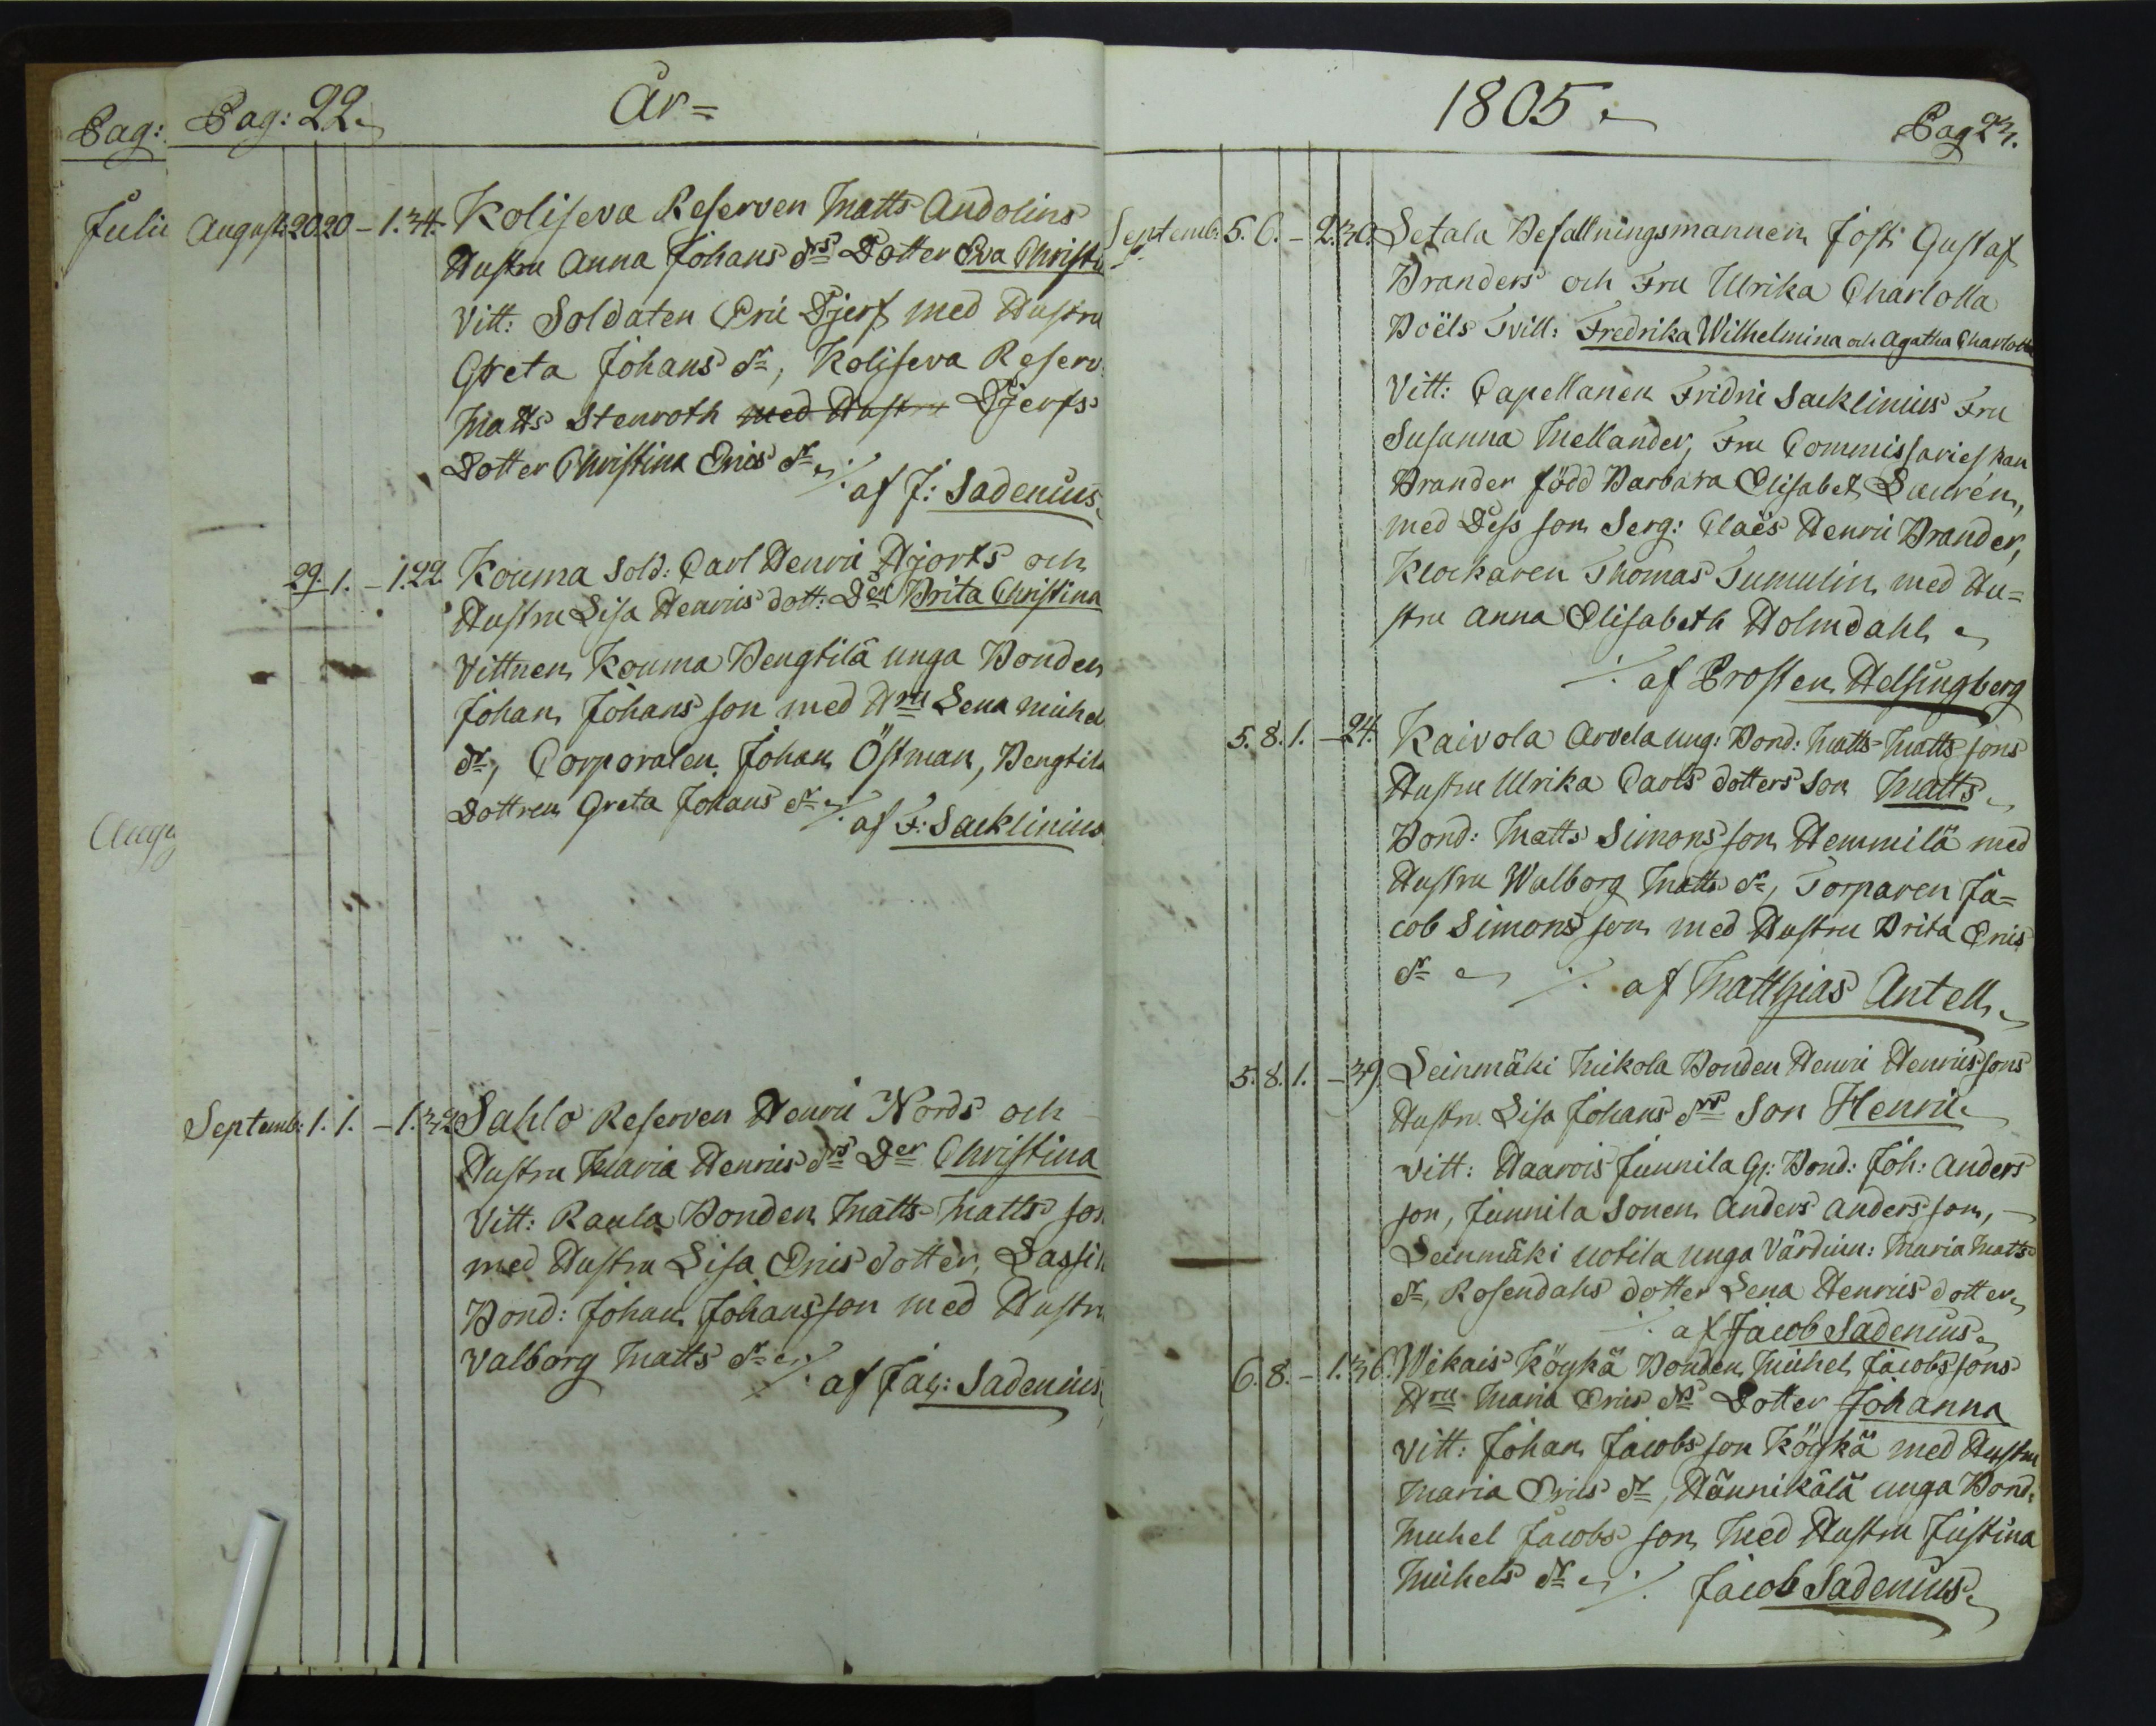 Pag:
Julii
Pag: 22.
År=
August: 20 20 – 1. 34. Koliseva Reserven Matts Andolins
Hustru Anna Johans drs Dotter Eva Christi
Vitt: Soldaten Eric Djerf med Hustru
Greta Johans dr, Koliseva Reserv.
Matts Stenroth med Hustru Djerfs
Dotter Christina Erics dr
af J: Sadenius
29. 1. – 1. 22. Kouma Sold: Carl Henric Hjorts och
Hustru Lisa Henrics dott: Der Brita Christina
Vittnen Kouma Bengtilä unga Bonden
Johan Johans son med Hru Lena Michel
dr, Corporalen Johan Östman, Bengtilä
Dottren Greta Johans dr
af F: Sacklinius
Septemb: 1. 1. – 1. 32 Sahlo Reserven Henric Nords och
Hustru Maria Henrics drs Der Christina
Vitt: Raula Bonden Matts Matts son
med Hustru Lisa Erics dotter, Lassil
Bond: Johan Johansson med Hustru
Valborg Matts dr
af Jac: Sadenius
1805
Pag 23.
Septemb: 5. 6. – 2. 30. Setala Befallningsmannen Josti Gustaf
Branders och Fru Ulrika Charlotta
Boëls Tvill: Fredrika Wilhelmina och Agatha Charlotta
Vitt: Capellanen Fridric Sacklinius Fru
Susanna Mellander, Fru Commissarieskan
Brander född Barbara Elisabet Laurén,
med Dess son Serg: Claës Henric Brander,
Klockaren Thomas Tumulin med Hu=
stru Anna Elisabeth Holmdahl
af Prosten Helsingberg
5. 8. 1. – 24. Kaivola Arvela ung: Bond: Matts Matts sons
Hustru Ulrika Carls dotters Son Matts
Bond: Matts Simons son Hemmilä med
Hustru Walborg Matts dr, Torparen Ja=
cob Simons son med Hustru Brita Erics
dr
af Matthias Antell
5. 8. 1. – 39. Leinmäki Mikola Bonden Henric Henrics sons
Hustru Lisa Johans drs Son Henric
Vitt: Haarois Junnila Gl: Bond: Joh: Anders
son, Junnila Sonen Anders Anders son,
Leinmäki uotila unga Värdinn: Maria Matts
dr, Rosendahs dotter Lena Henrics dotter
af Jacob Sadenius
6. 8. – 1. 36. Wikais Köykä Bonden Michel Jacobs sons
Hru Maria Erics drs Dotter Johanna
Vitt: Johan Jacobs son Köykä med Hustru
Maria Erics dr, Hännikälä unga Bond:
Michel Jacobs son med Hustru Justina
Michels dr
Jacob Sadenius